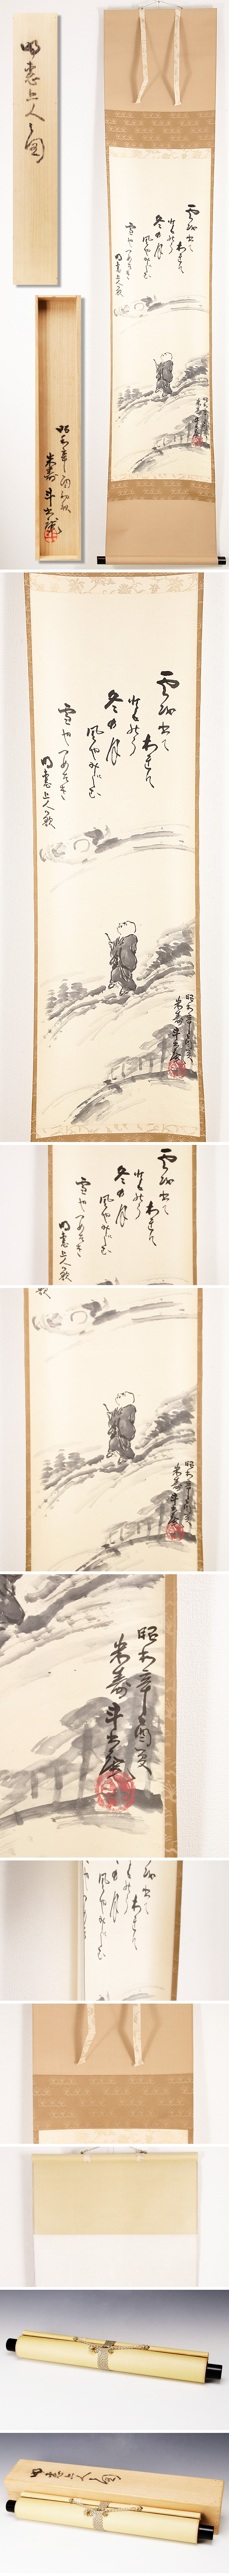 明恵上人之図
昭和辛酉初秋
米寿 斗
雲を出て
われに
ともなう
冬の月
風やみにしむ
雪やつめたき
明恵上人歌
昭和辛酉夏
米寿 斗